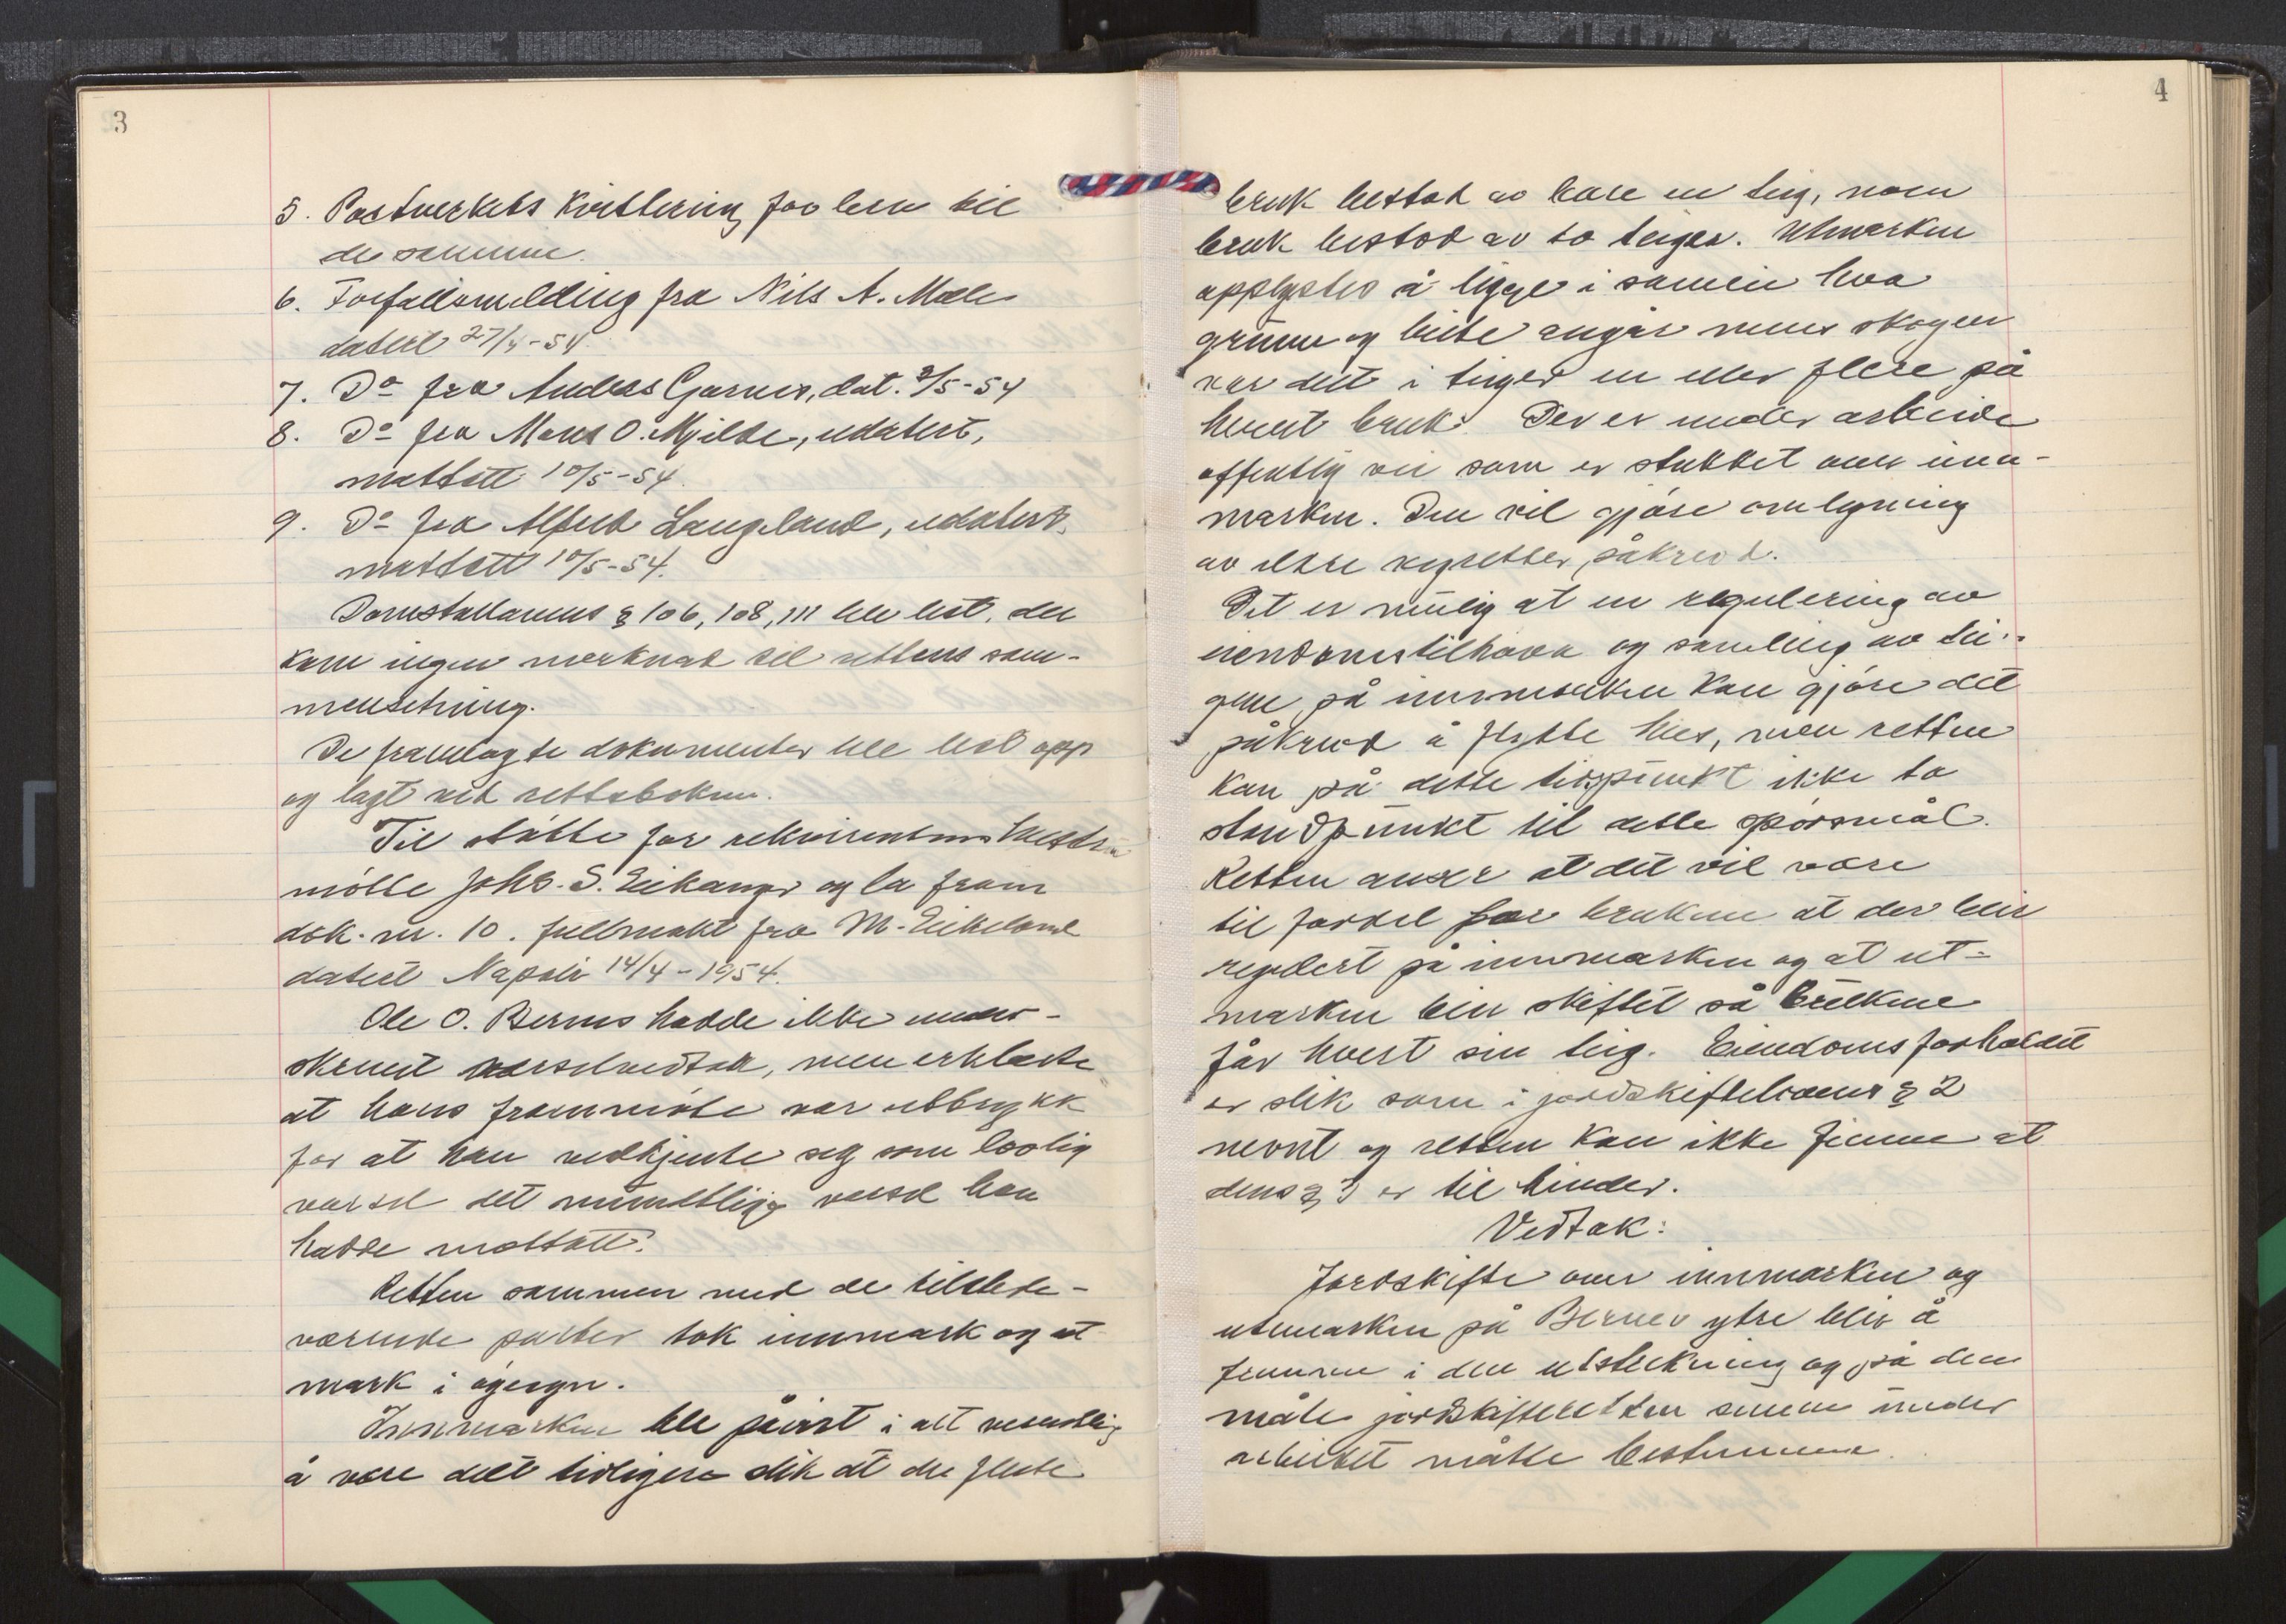 3
5. Postverkets kvittering for brev til
de samme.
6. Forfallsmelding fra Nils A. Mæle
datert 27/4-54
7. Do fra Andreas Garnes, dat. 3/5-54
8. Do fra Mons O. Mjelde, udatert,
mottatt 10/5-54.
9. Do fra Alfred Langeland, udatert.
mottatt 10/5-54.
Domstollovens § 106, 108, 111 ble lest. det
kom ingen merknad til rettens sam-
mensetning.
De framlagte dokumenter ble lest opp
og lagt ved rettsboken.
Til støtte for rekvirentens
møtte Johs. S. Eikanger og la fram
dok. nr. 10. fullmakt fra M. Eikeland
datert Napoli 14/4-1954.
Ole O. Bernes hadde ikke under-
skrevet varselvedtak, men erklærte
at hans frammøte var uttrykk
for at han vedkjente seg som lovlig
varsel det muntlige varsel han
hadde mottatt.
Retten sammen med de tilstede-
værende parter tok innmark og ut
mark i øgesyn.
Innmarken ble påvist i alt vesentlig
å være delt tidligere slik at de fleste
4
bruk bestod av bare en teig, noen
bruk bestod av to teiger. Utmarken
opplystes å ligge i samein hva
grunn og beite angår mens skogen
var delt i teiger en eller flere på
hvert bruk. Der er under arbeide
offentlig vei som er stukket over inn-
marken. Den vil gjøre omlegning
av eldre vegretter påkrevd.
Det er mulig at en regulering av
eiendomstilhøva og samling av tei-
gene på innmarken kan gjøre det
påkrevd å flytte hus, men retten
kan på dette tidspunkt ikke ta
standpunkt til dette spørsmål.
Retten anser at det vil være
til fordel for brukene at der blir
regulert på innmarken og at ut-
marken blir skiftet så brukene
får hvert sin teig. Eiendomsforholdet
er slik som i jordskiftelovens § 2
nevnt og retten kan ikke finne at
dens § 3 er til hinder.
Vedtak:
Jordskifte over innmarken og
utmarken på Bernes ytre blir å
fremme i den utstrekning og på den
måte jordskifteretten senere under
arbeidet måtte bestemme.